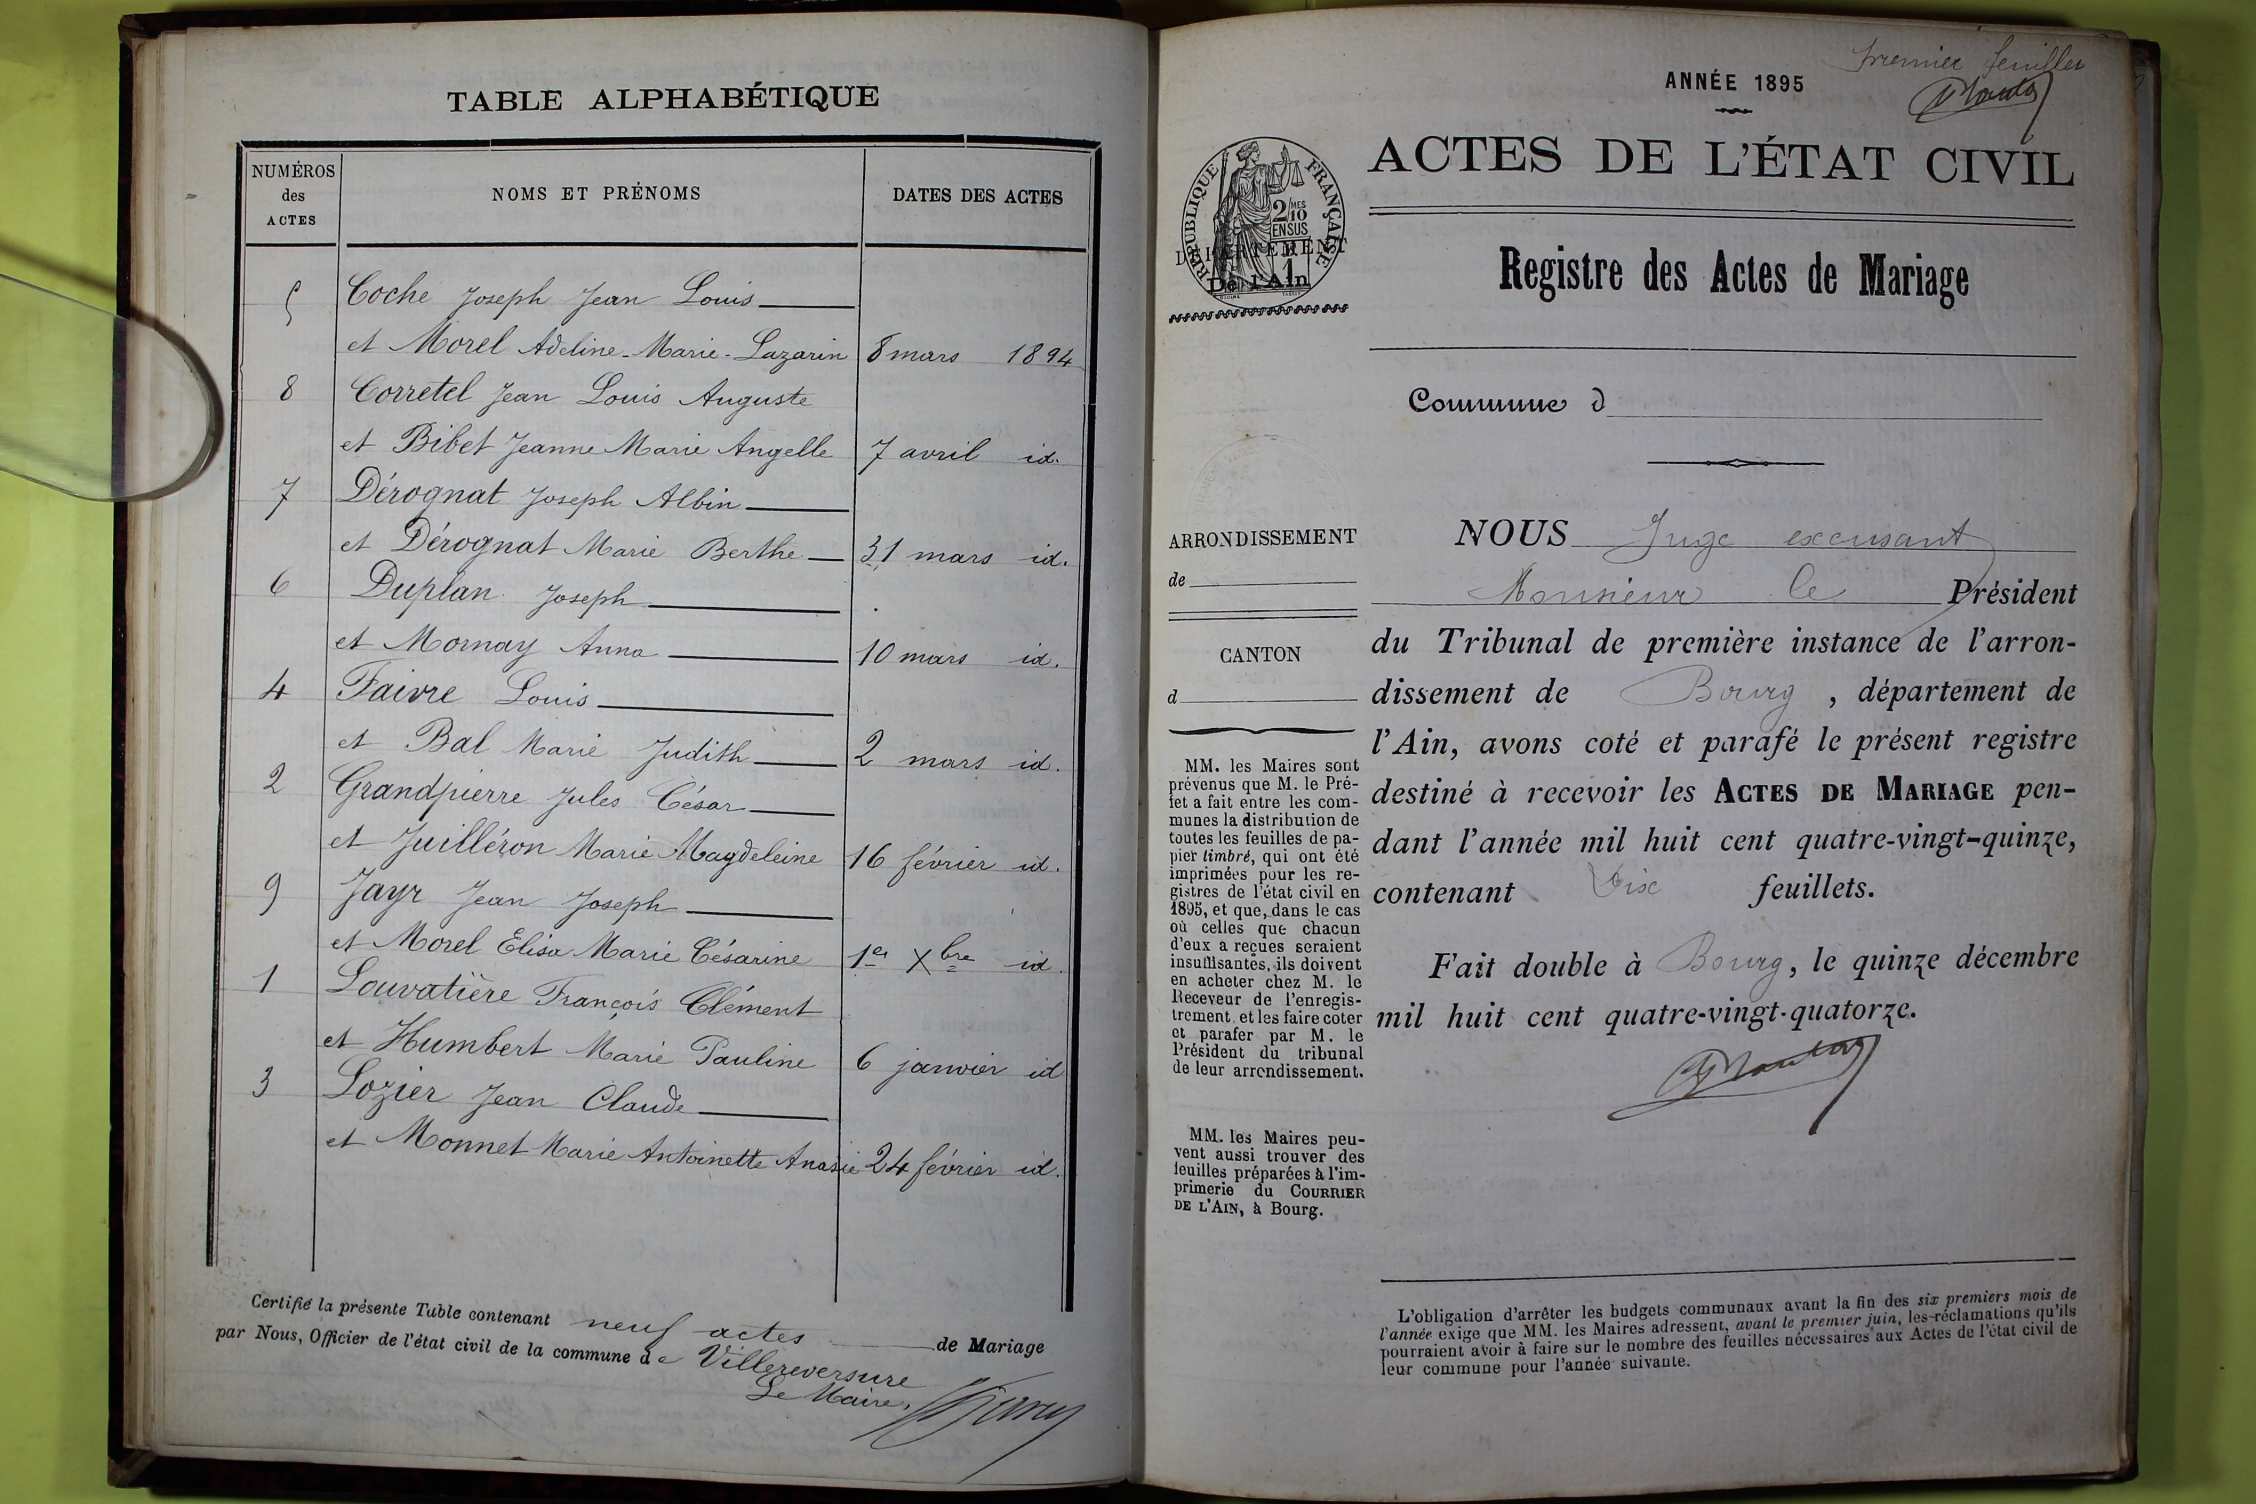 TABLE ALPHABÉTIQUE
NUMÉROS
des
ACTES
NOMS ET PRÉNOMS
DATES DES ACTES
5 Coche Joseph Jean Louis
et Morel Adeline-Marie-Lazarin 8 mars 1894
8 Corretel Jean Louis Auguste
et Bibet Jeanne Marie Angelle 7 avril id.
7 Dérognat Joseph Albin
et Dérognat Marie Berthe 31 mars id.
6 Duplan Joseph
et Mornay Anna 10 mars id.
4 Faivre Louis
et Bal Marie Judith 2 mars id.
2 Grandpierre Jules César
et Juilléron Marie Magdeleine 16 février id.
9 Jayr Jean Joseph
et Morel Elisa Marie Césarine 1er Xbre id.
1 Louvatière François Clément
et Humbert Marie Pauline 6 janvier id
3 Lozier Jean Claude
et Monnet Marie Antoinette Anasie 24 février id.
Certifié la présente Table contenant neuf actes de Mariage
par Nous, Officier de l'état civil de la commune de Villereversure
Le Maire,
premier feuillet
ANNÉE 1895
ACTES DE L'ÉTAT CIVIL
RÉPUBLIQUE FRANÇAISE
2/10 MES
EN SUS
1
DÉPARTEMENT
De l'Ain
Registre des Actes de Mariage
Commune d
ARRONDISSEMENT
de
CANTON
d
MM. les Maires sont
prévenus que M. le Pré-
fet a fait entre les com-
munes la distribution de
toutes les feuilles de pa-
pier timbré, qui ont été
imprimées pour les re-
gistres de l'état civil en
1895, et que, dans le cas
où celles que chacun
d'eux a reçues seraient
insuffisantes, ils doivent
en acheter chez M. le
Receveur de l'enregis-
trement et les faire coter
et parafer par M. le
Président du tribunal
de leur arrondissement.
MM. les Maires peu-
vent aussi trouver des
feuilles préparées à l'im-
primerie du COURRIER
DE L'AIN, à Bourg.
NOUS Juge excusant
Monsieur le Président
du Tribunal de première instance de l'arron-
dissement de Bourg, département de
l'Ain, avons coté et parafé le présent registre
destiné à recevoir les ACTES DE MARIAGE pen-
dant l'année mil huit cent quatre-vingt-quinze,
contenant Dix feuillets.
Fait double à Bourg, le quinze décembre
mil huit cent quatre-vingt-quatorze.
L'obligation d'arrêter les budgets communaux avant la fin des six premiers mois de
l'année exige que MM. les Maires adressent, avant le premier juin, les réclamations qu'ils
pourraient avoir à faire sur le nombre des feuilles nécessaires aux Actes de l'état civil de
leur commune pour l'année suivante.